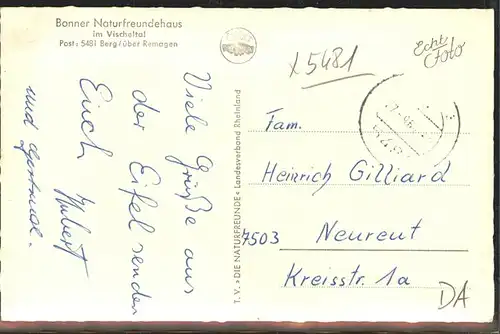 Bonner Naturfreundehaus
im Vischeltal
Post: 5481 Berg/über Remagen
Echt
Foto
x5481
Viele Grüße aus
der Eifel senden
Euch Hubert
und Gertrude.
T. V. »DIE NATURFREUNDE« Landesverband Rheinland
Fam.
Heinrich Gilliard
7503 Neureut
Kreisstr. 1a
DA